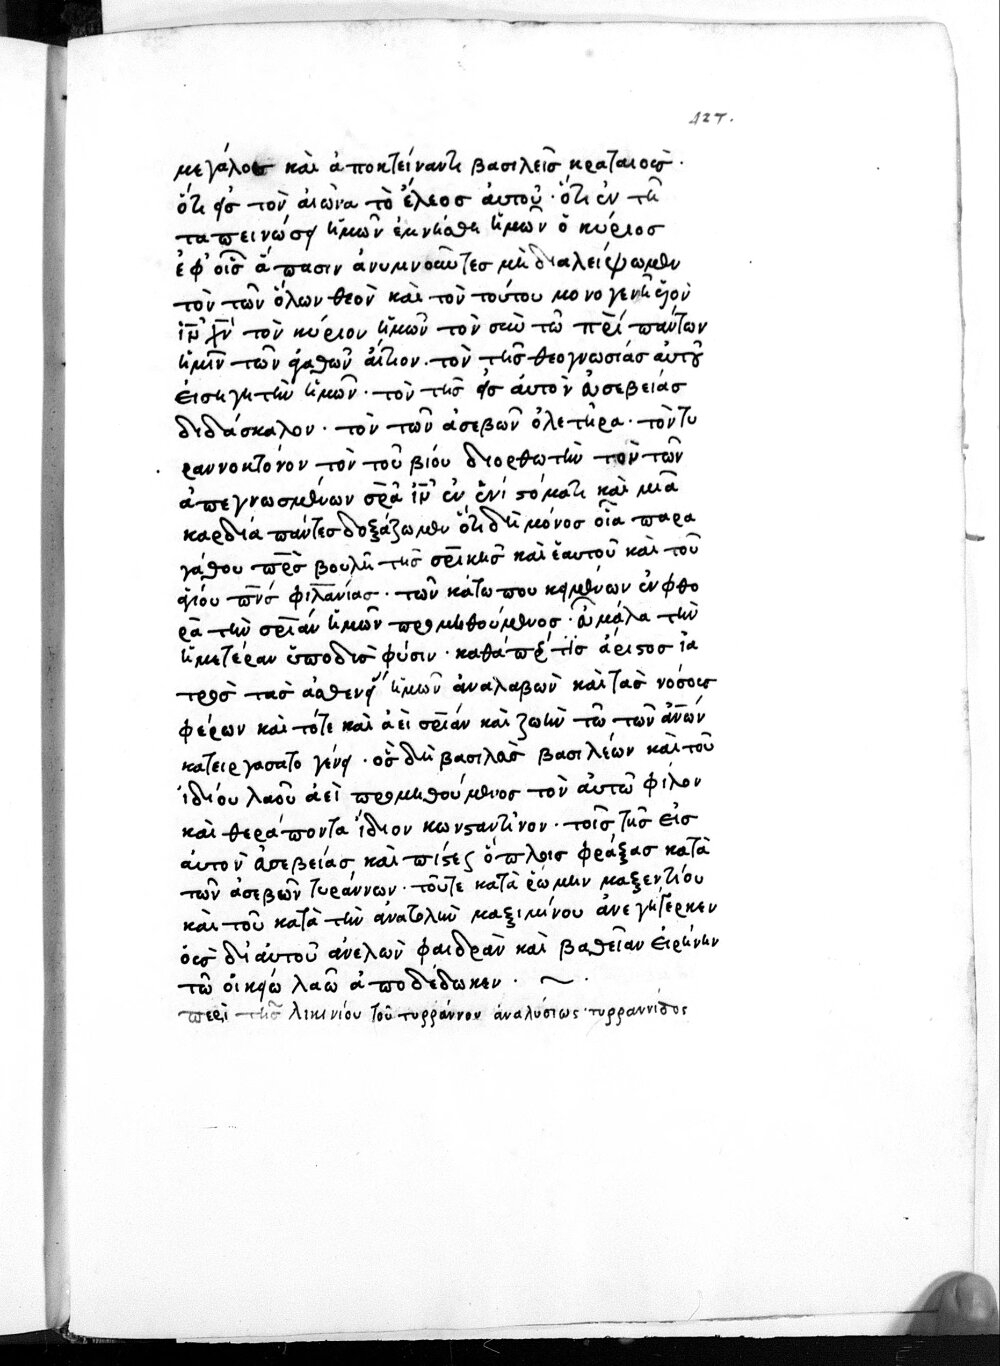 427.
μεγάλους καὶ ἀποκτείναντι βασιλεῖς κραταιούς·
ὅτι εἰς τὸν αἰῶνα τὸ ἔλεος αὐτοῦ· ὅτι ἐν τῆ
ταπεινώσει ἡμῶν ἐμνήσθη ἡμῶν ὁ κύριος
ἐφ' οἷς ἅπασιν ἀνυμνοῦντες μὴ διαλείψωμεν
τὸν τῶν ὅλων θεὸν καὶ τὸν τούτου μονογενῆ υἱὸν
ἰν χν τὸν κύριον ἡμῶν τὸν σὺν τῶ πρι πάντων
ἡμῖν τῶν ἀγαθῶν αἴτιον· τὸν τῆς θεογνωσίας αὐτοῦ
εἰσηγητὴν ἡμῶν· τὸν τῆς εἰς αὐτὸν εὐσεβείας
διδάσκαλον· τὸν τῶν ἀσεβῶν ὀλετῆρα· τὸν τυ
ραννοκτόνον τὸν τοῦ βίου διορθωτὴν τὸν τῶν
ἀπεγνωσμένων σρα ἰν ἐν ἑνὶ στόματι καὶ μιᾶ
καρδία πάντες δοξάζωμεν ὅτι δὴ μόνος οἷα παρα
γάθου πρς βουλῆ τῆς σρικῆς καὶ ἑαυτοῦ καὶ τοῦ
ἁγίου πνς φιλανίας· τῶν κάτω που κειμένων ἐν φθο
ρᾶ τὴν σριαν ἡμῶν προμηθούμενος· εὖ μάλα τὴν
ἡμετέραν ὑποδὺς φύσιν· καθάπερ τὶς ἄριστος ἰα
τρὸς τὰς ἀσθενείας ἡμῶν ἀναλαβὼν καὶ τὰς νόσους
φέρων καὶ τότε καὶ ἀεὶ σριαν καὶ ζωὴν τῶ τῶν ἀνων
κατειργάσατο γένει· ὃς δὴ βασιλεὺς βασιλέων καὶ τοῦ
ἰδίου λαοῦ ἀεὶ προμηθούμενος τὸν αὐτῶ φίλον
καὶ θεράποντα ἴδιον κωνσταντῖνον· τοῖς τῆς εἰς
αὐτὸν εὐσεβείας καὶ πίστεως ὅπλοις φράξας κατὰ
τῶν ἀσεβῶν τυράννων· τοῦτε κατὰ ῥώμην μαξεντίου
καὶ τοῦ κατὰ τὴν ἀνατολὴν μαξιμίνου ἀνεγήγερκεν
οὓς δι' αὐτοῦ ἀνελὼν φαιδρὰν καὶ βαθεῖαν εἰρήνην
τῶ οἰκείω λαῶ ἀποδέδωκεν· ~ ·
περὶ τῆς λικινίου τοῦ τυρράννου ἀναλύσεως τυρραννίδος